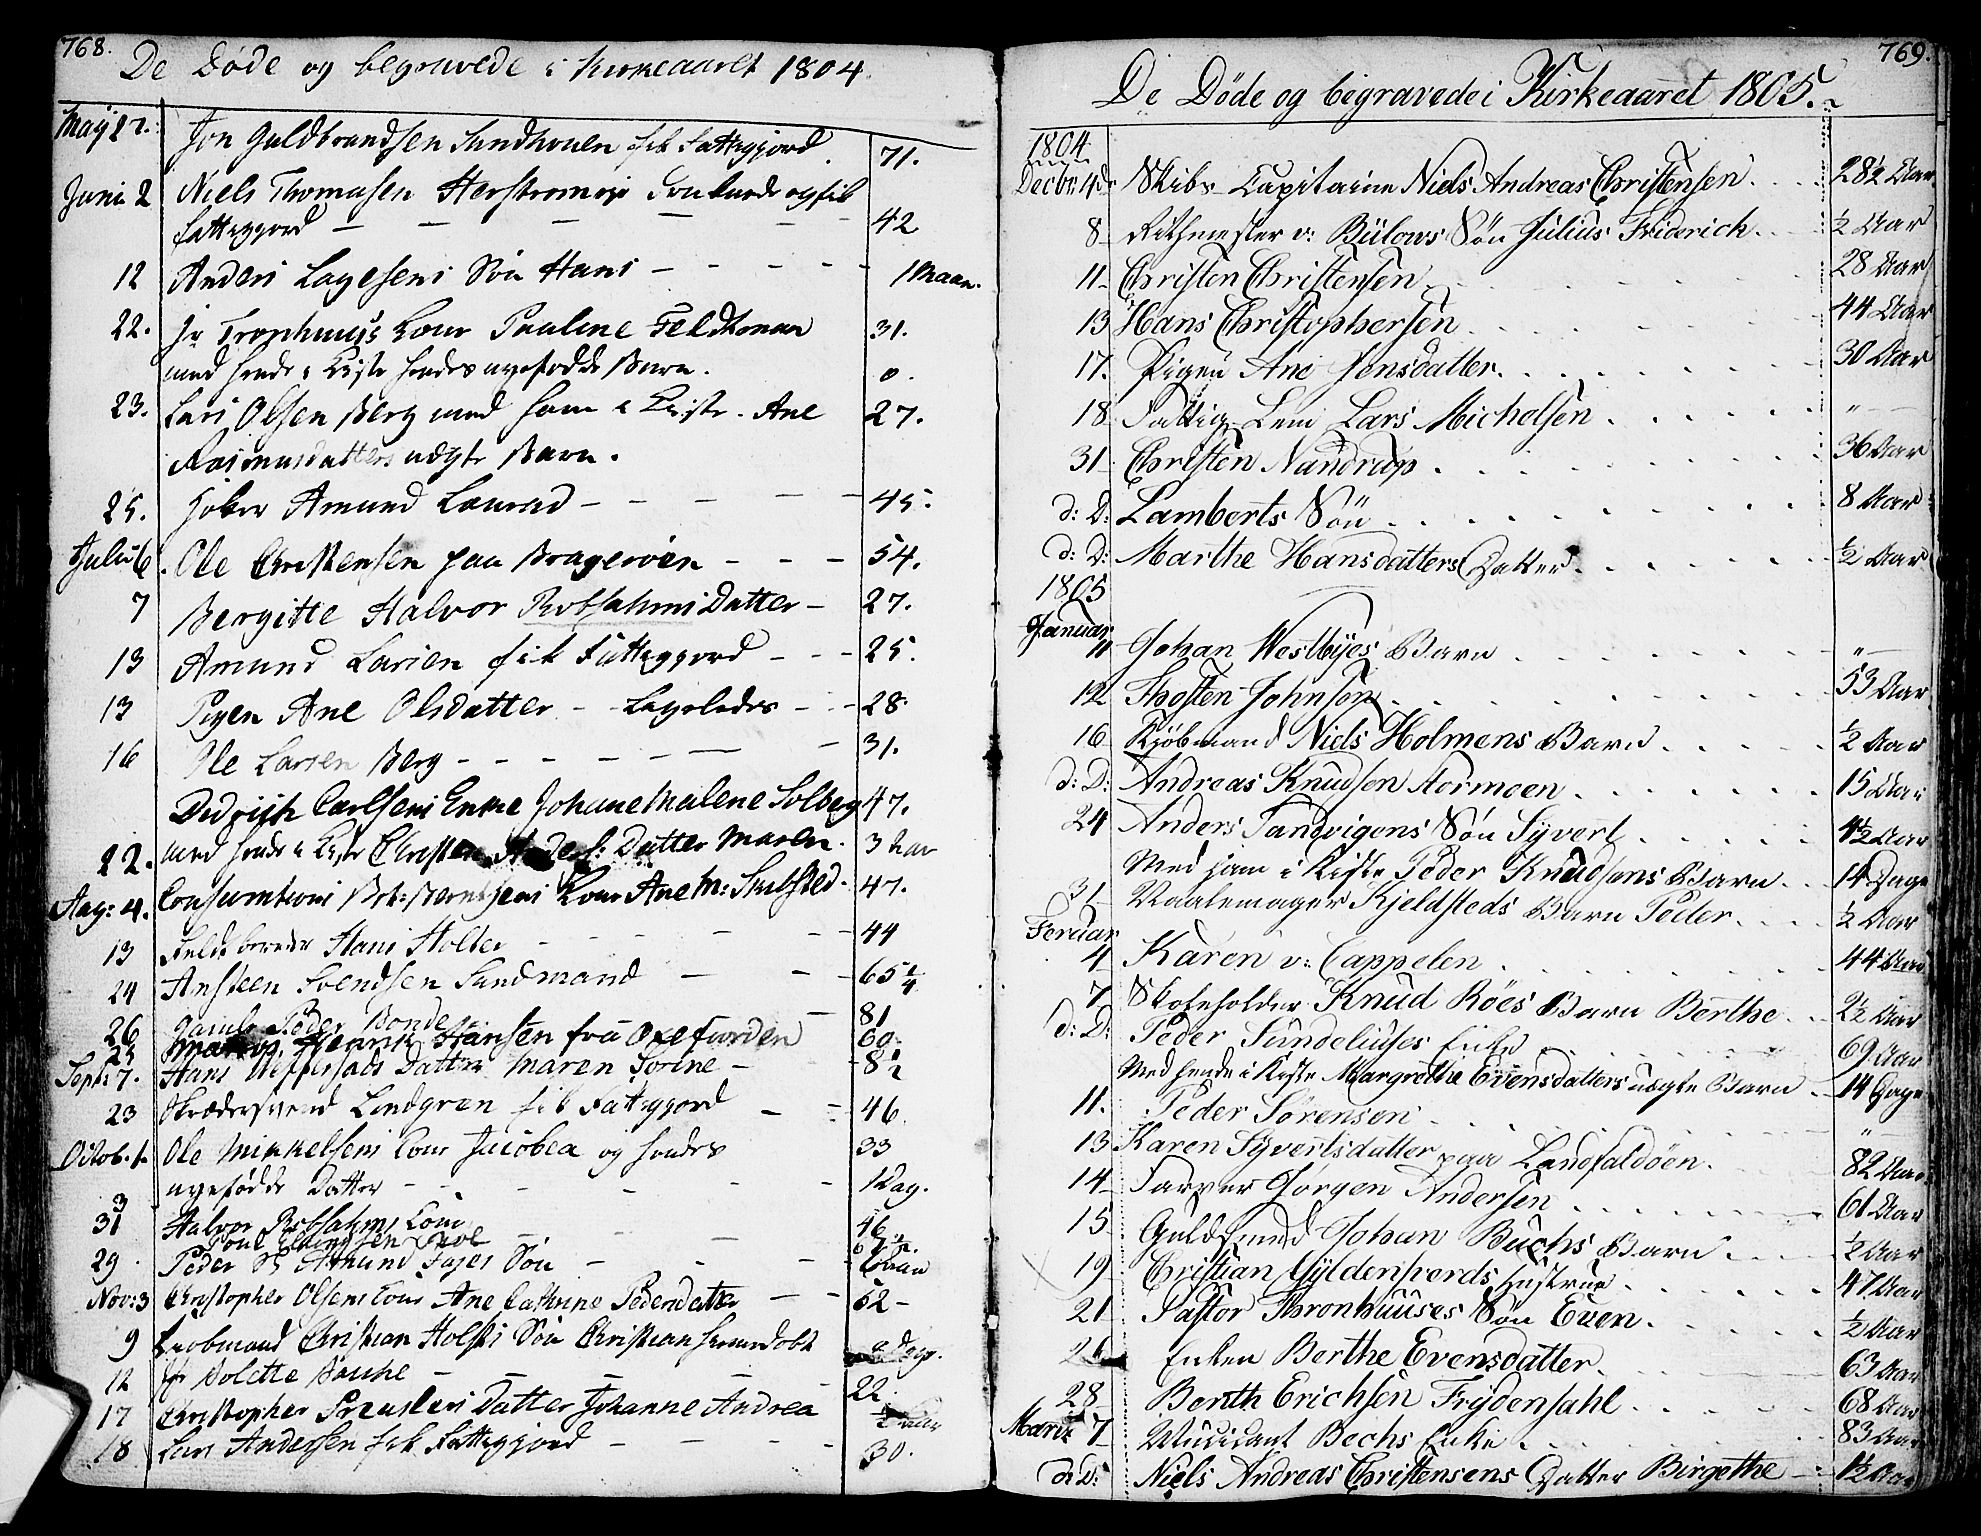 768.
De Døde og begravede i Kirkeaaret 1804.
May 27. Jon Guldbrandsen Sundhouen fik Fattigjord. 71.
Juni 2 Niels Thomasen Herstrømsøe og fik
fattigjord — — — — 42
12 Anders Lagesens Søn Hans — — — 1 Maan.
22. Hr Tronhuus's Kone Pauline Feldtman 31.
med hende i Kiste hendes nyefødde Barn. 0.
23. Lars Olsen Berg med ham i Kiste. Ane 27.
Rasmusdatters uægte Barn.
25. Amund — — — 45.
Juli 6. Ole Christensen paa Bragerøen — — — 54.
7 Bergitte Halvor Robsahms Datter — 27.
13 Amund Larsen fik Fattigjord — — — 25.
13 Pigen Ane Olsdatter — — 28.
16 Ole Larsen Berg — — — — 31.
Didrich Carlsens Enke Johane Malene Solberg 47.
22. med hende i Kiste Christen Anders: Datter Maren. 3 Aar
Aug: 4. Consumtions Kone Ane M: 47.
13 Hans Holter — — — 44
24 Ansteen Svendsen Sundmand — — — 65 1/4
26 Peder Bonde — 81
25 Henrik Hansen fra 60.
Sept: 7. Hans Datter Maren Sorine — 8 1/2
23 Skrædersvend Lindgren fik Fattigjord — — 46
Octob. 1. Ole Mikkelsens Kone Jacobea og hendes 33
nyefødde Datter — — — — 1 Dag.
3 Halvor Robsahms Kone 46
31
29. Peder Søn — — —
Nov: 3 Christopher Olsens Kone Ane Cathrine Pedersdatter — — 52 —
9 Kiøbmand Christian Holsts Søn Christian hiemmedøbt Dage.
12 Jfr Bolette — — — 22
17 Christopher Datter Johanne Andrea 1/2 Aar
18 Lars Anderssen fik Fattigjord — — — 30.
769.
De Døde og begravede i Kirkeaaret 1805.
1804
Decbr: 4de Skibs Capitaine Niels Andreas Christensen. 28½ Aar
8 Rithmester v: Bülows Søn Julius Friderich. ½ Aar
11 Christen Christensen 28 Aar
13 Hans Christophersen. 44 Aar
17. Pigen Ane Jensdatter. 30 Aar
18 Fattig-Lem Lars Michelsen. "
31 Christen Nandrup. 36 Aar
d: D: Lamberts Søn 8 Aar
d: D: Marthe Hansdatters Datter. ½ Aar
1805
Januar
11 Johan Westbyes Barn "
12 Thosten Johnsen 53 Aar
16 Kjøbmand Niels Holmens Barn. ½ Aar
d: D: Andreas Knudsen Stormoen 15 Aar
24 Anders Tandvigens Søn Syvert 4½ Aar
Med ham i Kiste Peder Knudsens Barn. 14 Dage
31 Maalemager Kjeldsteds Barn Peder. ½ Aar
Feruar
4 Karen v: Cappelen 44 Aar
7 Skoleholder Knud Röes Barn Berthe 2½ Aar
d: D: Peder Sundeliuses Enke 69 Aar
Med hende i Kiste Margrethe Evensdatters uægte Barn 14 Dage
11. Peder Sörensen "
13 Karen Syvertsdatter paa Landfaldøen. 82 Aar
14 Farver Jörgen Andersen 61 Aar
15 Guldsmed Johan Buchs Barn ½ Aar
19 Christian Gyldenherds Hustrue. 47 Aar
21 Pastor Thronhuuses Søn Even. ½ Aar
26 Enken Berthe Evensdatter. 63 Aar
28 Bernth Erichsen Frydensahl 68 Aar
Martz 7 Musicant Bechs Enke 83 Aar
d: D: Niels Andreas Christensens Datter Birgethe 1½ Aar